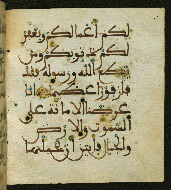 لكم أعمالكم ويغفر
لكم ذنوبكم ومن
يطع الله ورسوله فقد
فاز فوزا عظيما إنا
عرضنا الأمانة على
السموت والأرض
والجبال فأبين أن يحملنها